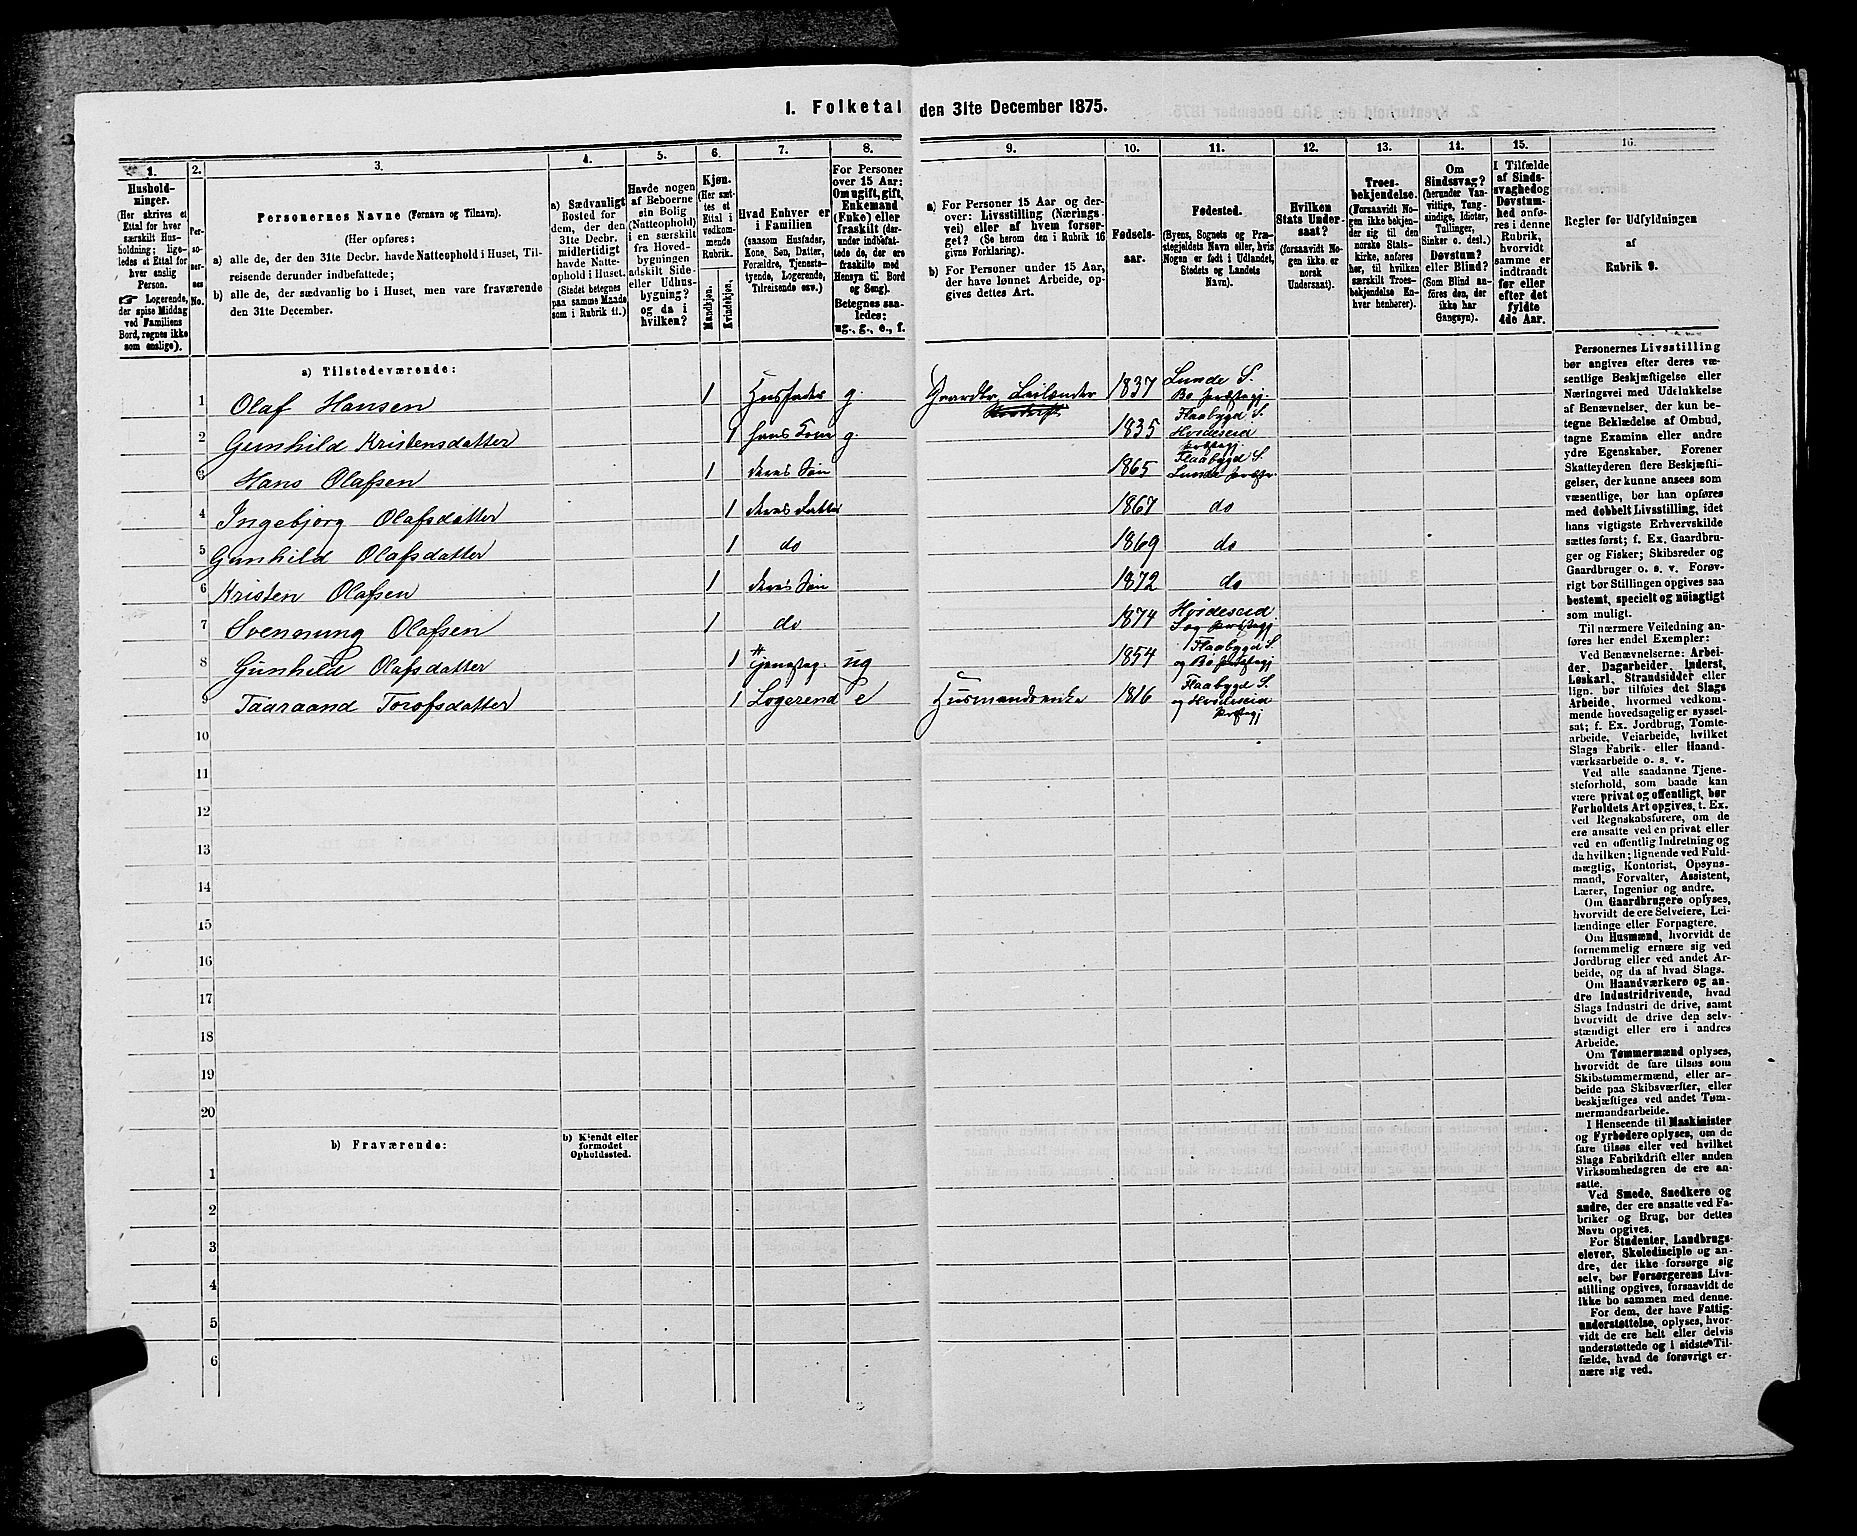 1. Folketal den 31te December 1875.
1.
2.
3.
4.
5.
6.
7.
8.
9.
10.
11.
12.
13.
14.
15.
16.
Hushold-
ninger.
(Her skrives et
Ettal for hver
særskilt Hus-
holdning; lige-
ledes et Ettal for
hver enslig
Person.
☞ Logerende,
der spise Middag
ved Familiens
Bord, regnes ikke
som enslige).
Per-
so-
ner-
nes
No.
Personernes Navne (Fornavn og Tilnavn).
(Her opføres:
a) alle de, der den 31te Decbr. havde Natteophold i Huset, Til-
reisende derunder indbefattede;
b) alle de, der sædvanlig bo i Huset, men vare fraværende
den 31te December.
a) Sædvanligt
Bosted for
dem, der den
31te Decbr.
midlertidigt
havde Natte-
ophold i Huset.
(Stedet betegnes
paa samme Maade
som i Rubrik 11.)
Havde nogen
af Beboerne
sin Bolig
(Natteophold)
i en særskilt
fra Hoved-
bygningen
adskilt Side-
eller Udhus-
bygning?
og da i
hvilken?
Kjøn.
(Her sæt-
tes et
Ettal i
vedkom-
mende
Rubrik.
Mandkjøn.
Kvindekjøn.
Hvad Enhver er
i Familien
(saasom Husfader,
Kone, Søn, Datter,
Forældre, Tjeneste-
tyende, Logerende,
Tilreisende osv.)
For Personer
over 15 Aar:
Om ugift, gift,
Enkemand
(Enke) eller
fraskilt (der-
under indbefat-
tede de, der ere
fraskilte med
Hensyn til Bord
og Seng).
Betegnes saa-
ledes:
ug., g., e., f.
a) For Personer 15 Aar og der-
over: Livsstilling (Nærings-
vei) eller af hvem forsør-
get? (Se herom den i Rubrik 16
givne Forklaring).
b) For Personer under 15 Aar,
der have lønnet Arbeide, op-
gives dettes Art.
Fødsels-
aar.
Fødested.
(Byens, Sognets og Præ-
stegjeldets Navn eller, hvis
Nogen er født i Udlandet,
Stedets og Landets
Navn).
Hvilken
Stats Under-
saat?
(forsaavidt No-
gen ikke er
norsk
Undersaat).
Troes-
bekjendelse.
(Forsaavidt No-
gen ikke bekjen-
der sig til den
norske Stats-
kirke, anføres
her, til hvilken
særskilt Troes-
bekjendelse En-
hver henhører).
Om
Sindssvag?
(herunder Van-
vittige, Tung-
sindige, Idioter,
Tullinger,
Sinker o. desl.)
Døvstum?
eller Blind?
(Som Blind an-
føres den, der
ikke har
Gangsyn).
I Tilfælde
af Sinds-
svaghed og
Døvstum-
hed anfø-
res i denne
Rubrik,
hvorvidt
samme er
indtraadt
før eller
efter det
fyldte
4de Aar.
Regler for Udfyldningen
af
Rubrik 9.
a) Tilstedeværende:
1 Olaf Hansen 1 Husfader g. Gaardbr. Leilænder 1837 Lunde S.
Bø Præstegj
2 Gunhild Kristensdatter 1 hans Kone g. 1835 Flaabygd S.
Hvideseid
Præstegj.
3 Hans Olafsen 1 deres Søn 1865 Flaabygd S.
Lunde Præstgj.
4 Ingebjørg Olafsdatter 1 deres Datter 1867 do
5 Gunhild Olafsdatter 1 do 1869 do
6 Kristen Olafsen 1 deres Søn 1872 do
7 Svennung Olafsen 1 do 1874 Hvideseid
S og Præstegj
8 Gunhild Olafsdatter 1 Tjenesteg. ug 1854 Flaabygd S.
og Bø Præstegj
9 Taaraand Torofsdatter 1 Logerend e Husmandsenke 1816 Flaabygd S.
og Hvideseid
Præstegj
10
11
12
13
14
15
16
17
18
19
20
b) Fraværende:
b) Kjendt eller
formodet
Opholdssted.
1
2
3
4
5
6
Personernes Livsstilling
bør angives efter deres væ-
sentlige Beskjæftigelse eller
Næringsvei med Udelukkelse
af Benævnelser, der kun be-
tegne Beklædelse af Ombud,
tagne Examina eller andre
ydre Egenskaber. Forener
Skatteyderen flere Beskjæfti-
gelser, der kunne ansees som
væsentlige, bør han opføres
med dobbelt Livsstilling, idet
hans vigtigste Erhvervskilde
sættes først; f. Ex. Gaardbru-
ger og Fisker; Skibsreder og
Gaardbruger o. s. v. Forøv-
rigt bør Stillingen opgives saa
bestemt, specielt og nöiagtigt
som muligt.
Til nærmere Veiledning an-
føres her endel Exempler:
Ved Benævnelserne: Arbei-
der, Dagarbeider, Inderst,
Løskarl, Strandsidder eller
lign. bør tilføies det Slags
Arbeide, hvormed vedkom-
mende hovedsagelig er syssel-
sat; f. Ex. Jordbrug, Tomte-
arbeide, Veiarbeide, hvilket
Slags Fabrik- eller Haand-
værksarbeide o. s. v.
Ved alle saadanne Tjene-
steforhold, som baade kan
være privat og offentligt, bør
Forholdets Art opgives, t. Ex.
ved Regnskabsførere, om de
ere ansatte ved en privat eller
ved en offentlig Indretning og
da hvilken; lignende ved Fuld-
mægtig, Kontorist, Opsyns-
mand, Forvalter, Assistent,
Lærer, Ingeniør og andre.
Om Gaardbrugere oplyses,
hvorvidt de ere Selveiere, Lei-
lændinge eller Forpagtere.
Om Husmænd, hvorvidt de
fornemmelig ernære sig ved
Jordbrug eller ved andet Ar-
beide, og da af hvad Slags.
Om Haandværkere og an-
dre Industridrivende, hvad
Slags Industri de drive, samt
hvorvidt de drive den selv-
stændigt eller ere i andres
Arbeide.
Om Tømmermænd oplyses,
hvorvidt de fare tilsøs som
Skibstømmermænd, eller ar-
beide paa Skibsværfter, eller
beskjæftiges ved andet Tøm-
mermandsarbeide.
I Henseende til Maskinister
og Fyrbødere oplyses, om de
fare tilsøs eller ved hvilket
Slags Fabrikdrift eller anden
Virksomhedsgren de ere an-
satte.
Ved Smede, Snedkere og
andre, der ere ansatte ved Fa-
briker og Brug, bør dettes
Navn opgives.
For Studenter, Landbrugs-
elever, Skoledisciple og an-
dre, der ikke forsørge sig
selv, bør Forsørgerens Livs-
stilling opgives, forsaavidt de
ikke bo sammen med denne.
For dem, der have Fattig-
understøttelse, oplyses, hvor-
vidt de ere helt eller delvis
understøttede og i sidste Til-
fælde, hvad de forøvrigt er-
nære sig ved.